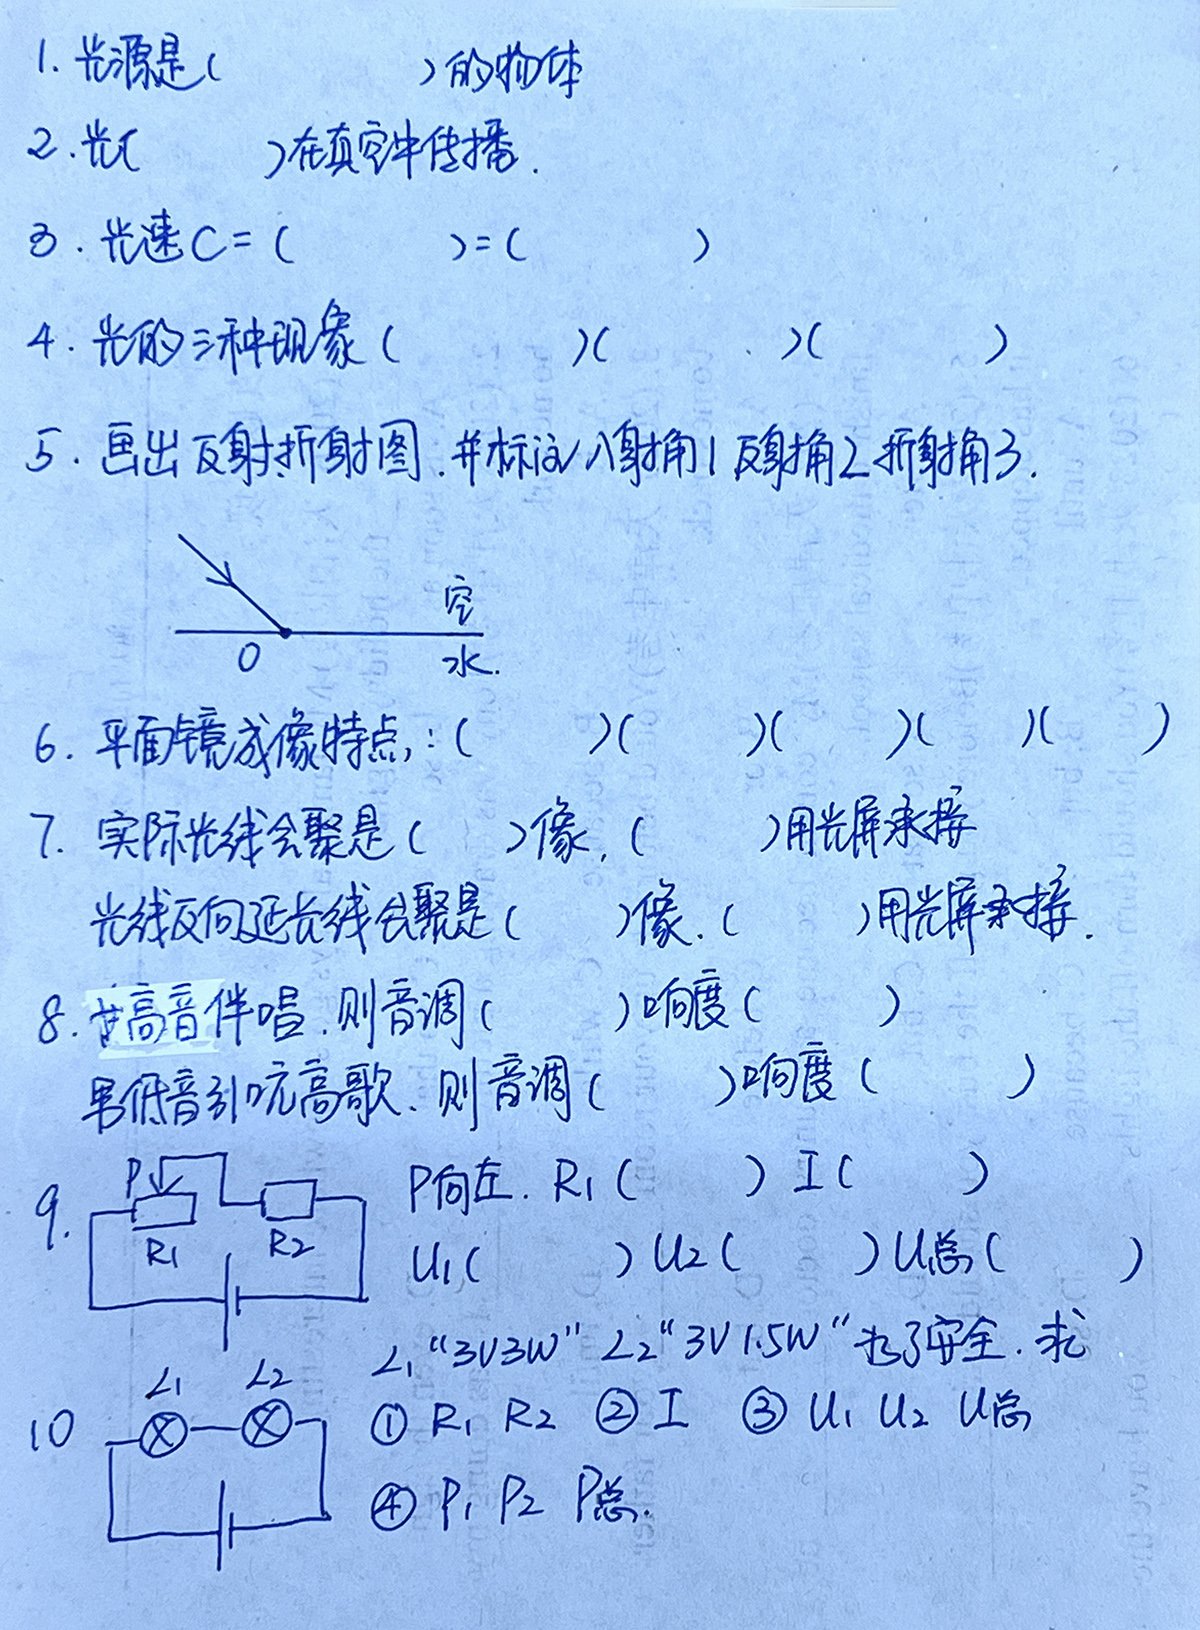 1. 光源是(        )的物体
2. 光(        )在真空中传播.
3. 光速C=(        )=(        )
4. 光的三种现象(        )(        )(        )
5. 画出反射.折射图.并标注入射角1 反射角2 折射角3.
空
O 水.
6. 平面镜成像特点:(        )(        )(        )(        )(        )
7. 实际光线会聚是(        )像.(        )用光屏承接
光线反向延长线会聚是(        )像.(        )用光屏承接.
8. 高音伴唱.则音调(        )响度(        )
男低音引吭高歌.则音调(        )响度(        )
9. P R1 R2 P向左. R1(        ) I(        )
U1(        ) U2(        ) U总(        )
L1 "3V3W" L2 "3V1.5W" 为了安全.求
10 L1 L2 ① R1 R2 ② I ③ U1 U2 U总
④ P1 P2 P总.